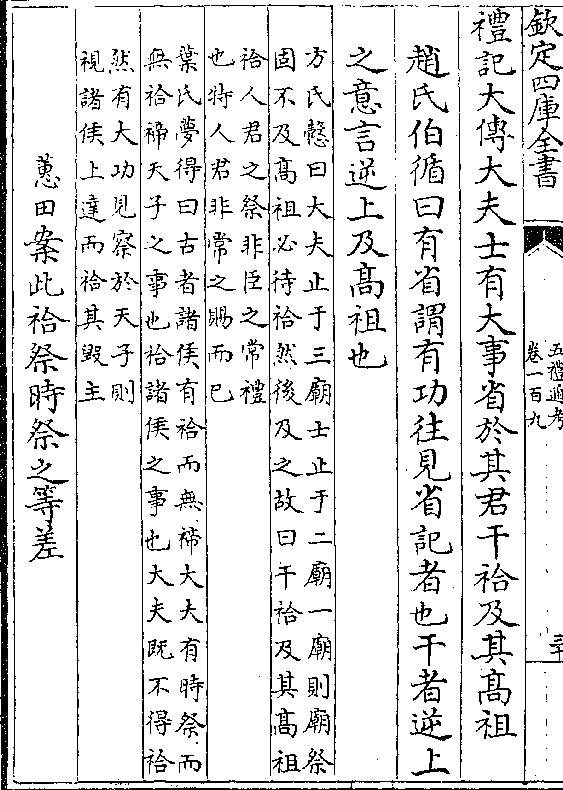 欽定四庫全書
五禮通考
卷一百九
三十
禮記大傳大夫士有大事省於其君干祫及其髙祖
趙氏伯循曰有省謂有功往見省記者也干者逆上
之意言逆上及髙祖也
方氏慤曰大夫止于三廟士止于二廟一廟則廟祭
固不及髙祖必待祫然後及之故曰干祫及其髙祖
祫人君之祭非臣之常禮
也特人君非常之賜而已
葉氏夢得曰古者諸侯有祫而無禘大大有時祭而
無祫禘天子之事也祫諸侯之事也大夫既不得祫
然有大功見察於天子則
視諸侯上達而祫其毀主
蕙田案此祫祭時祭之等差